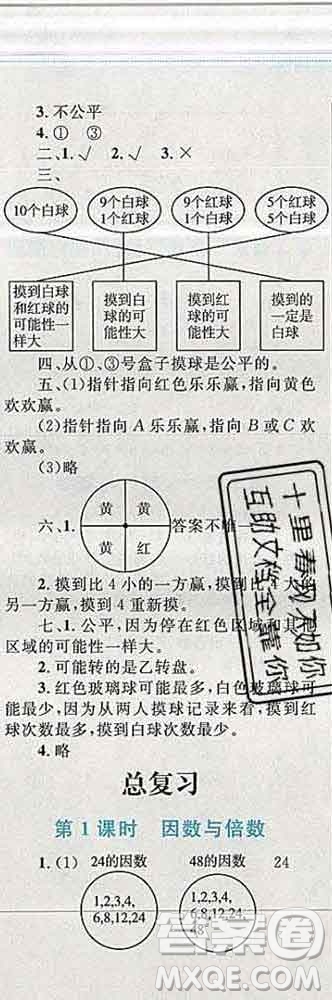 3.不公平
4.① ③
二、1.√ 2.√ 3.×
三、
10个白球 9个白球 9个红球 5个红球
1个红球 1个白球 5个白球
摸到白球 摸到白 摸到红 摸到的
和红球的 球的可 球的可 一定是
可能性一 能性大 能性大 白球
样大
四、从①、③号盒子摸球是公平的。
五、(1)指针指向红色乐乐赢,指向黄色
欢欢赢。
(2)指针指向A乐乐赢,指向B或C欢
欢赢。
(3)略
黄 黄
六、1. 答案不唯一
黄 红
2.摸到比4小的一方赢,摸到比 大
另一方赢,摸到4重新摸。
七、1.公平,因为停在红色区域和其
区域的可能性一样大。
2.可能转的是乙转盘。
3.红色玻璃球可能最多,白色玻璃球可
能最少,因为从两人摸球记录来看,摸到红
球次数最多,摸到白球次数最少。
4.略
总复习
第1课时 因数与倍数
1.(1) 24的因数 48的因数 24
1,2,3,4, 1,2,3,4,
6,8,12,24 6,8,12,24,
48
十里春风不如你
互助文档全靠你
答案圈
MXQE.COM